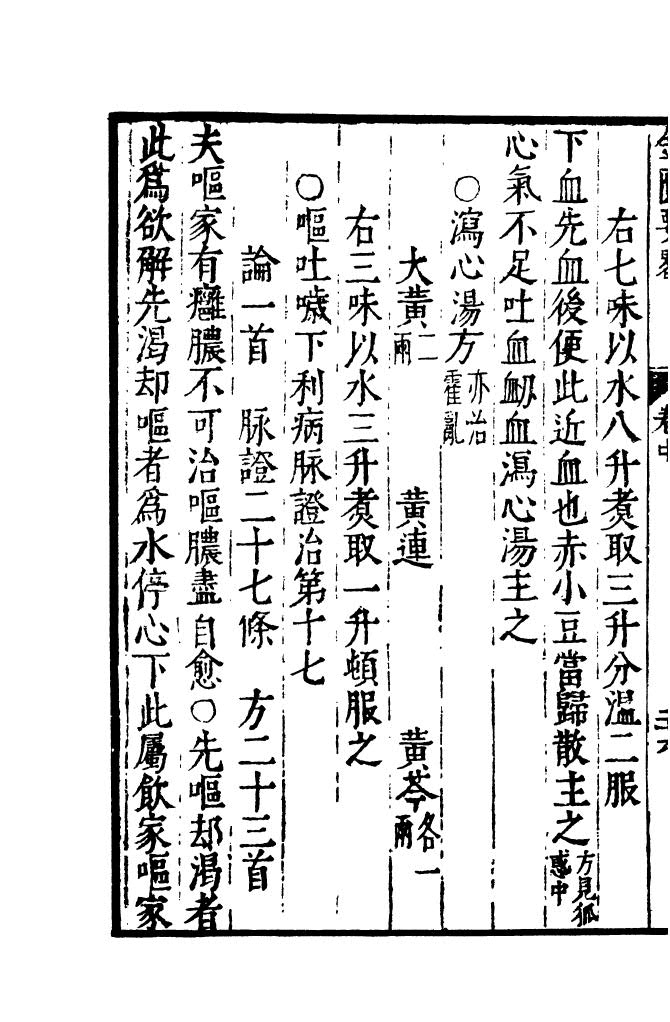 右七味以水八升煑取三升分温二服
下血先血後便此近血也赤小豆當歸散主之方見狐惑中
心氣不足吐血衂血瀉心湯主之
○瀉心湯方亦治霍亂
大黄二兩　黄連　黄芩各一兩
右三味以水三升煑取一升頓服之
○嘔吐噦下利病脉證治第十七
論一首　脉證二十七條　方二十三首
夫嘔家有癰膿不可治嘔膿盡自愈○先嘔却渴者
此爲欲解先渴却嘔者爲水停心下此屬飲家嘔家